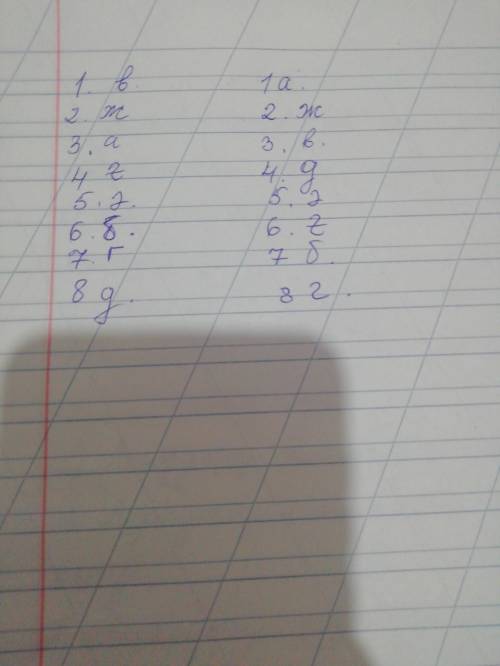 1. в. 1 а.
2. ж 2. ж
3. а 3. в.
4 г 4. д
5. з. 5. з
6. б. 6. г
7. г 7 б.
8 д. 8 г.